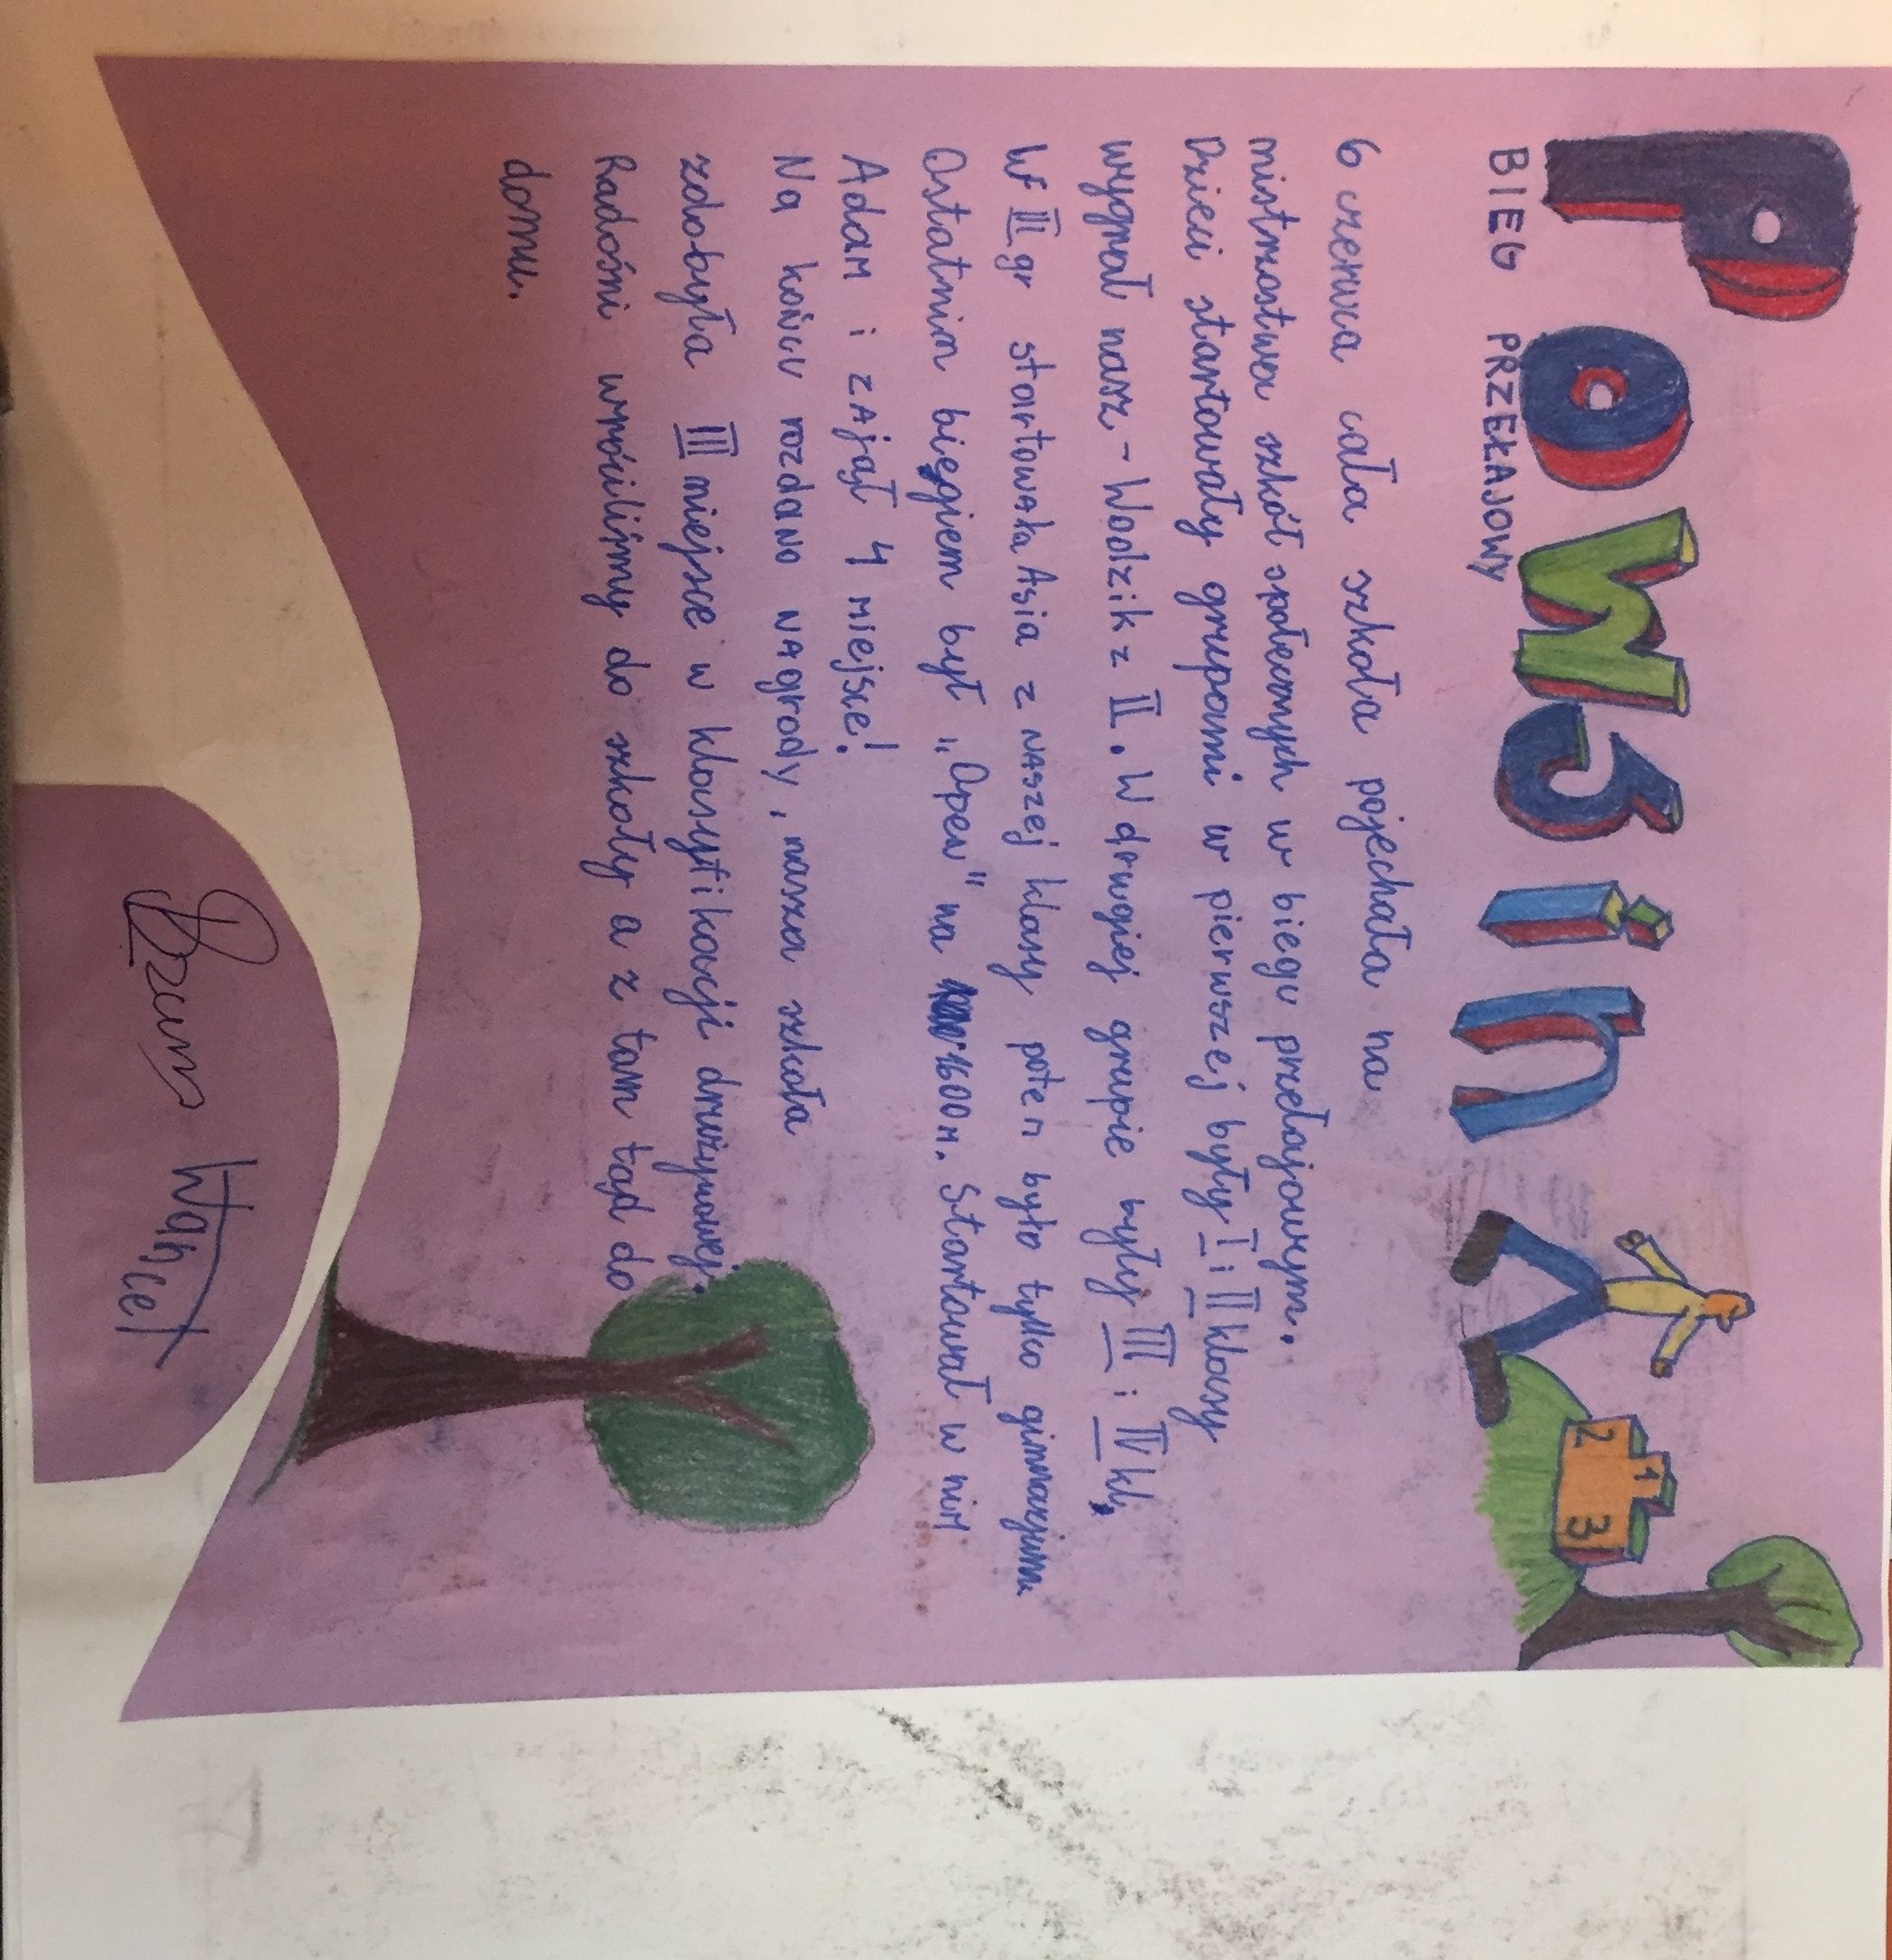 Powsin
BIEG PRZEŁAJOWY
6 czerwca cała szkoła pojechała na
mistrzostwa szkół społecznych w biegu przełajowym.
Dzieci startowały grupami w pierwszej były I i II klasy
wygrał nasz - Woodzik z II. W drugiej grupie były III i IV kl,
W II gr startowała Asia z naszej klasy potem było tylko gimnazjum
Ostatnim biegiem był „Open" na 1600m. Startował w nim
Adam i zajął 4 miejsce!
Na końcu rozdano nagrody, nasza szkoła
zdobyła III miejsce w klasyfikacji drużynowej.
Radośni wróciliśmy do szkoły a z tam tąd do
domu.
2 1 3